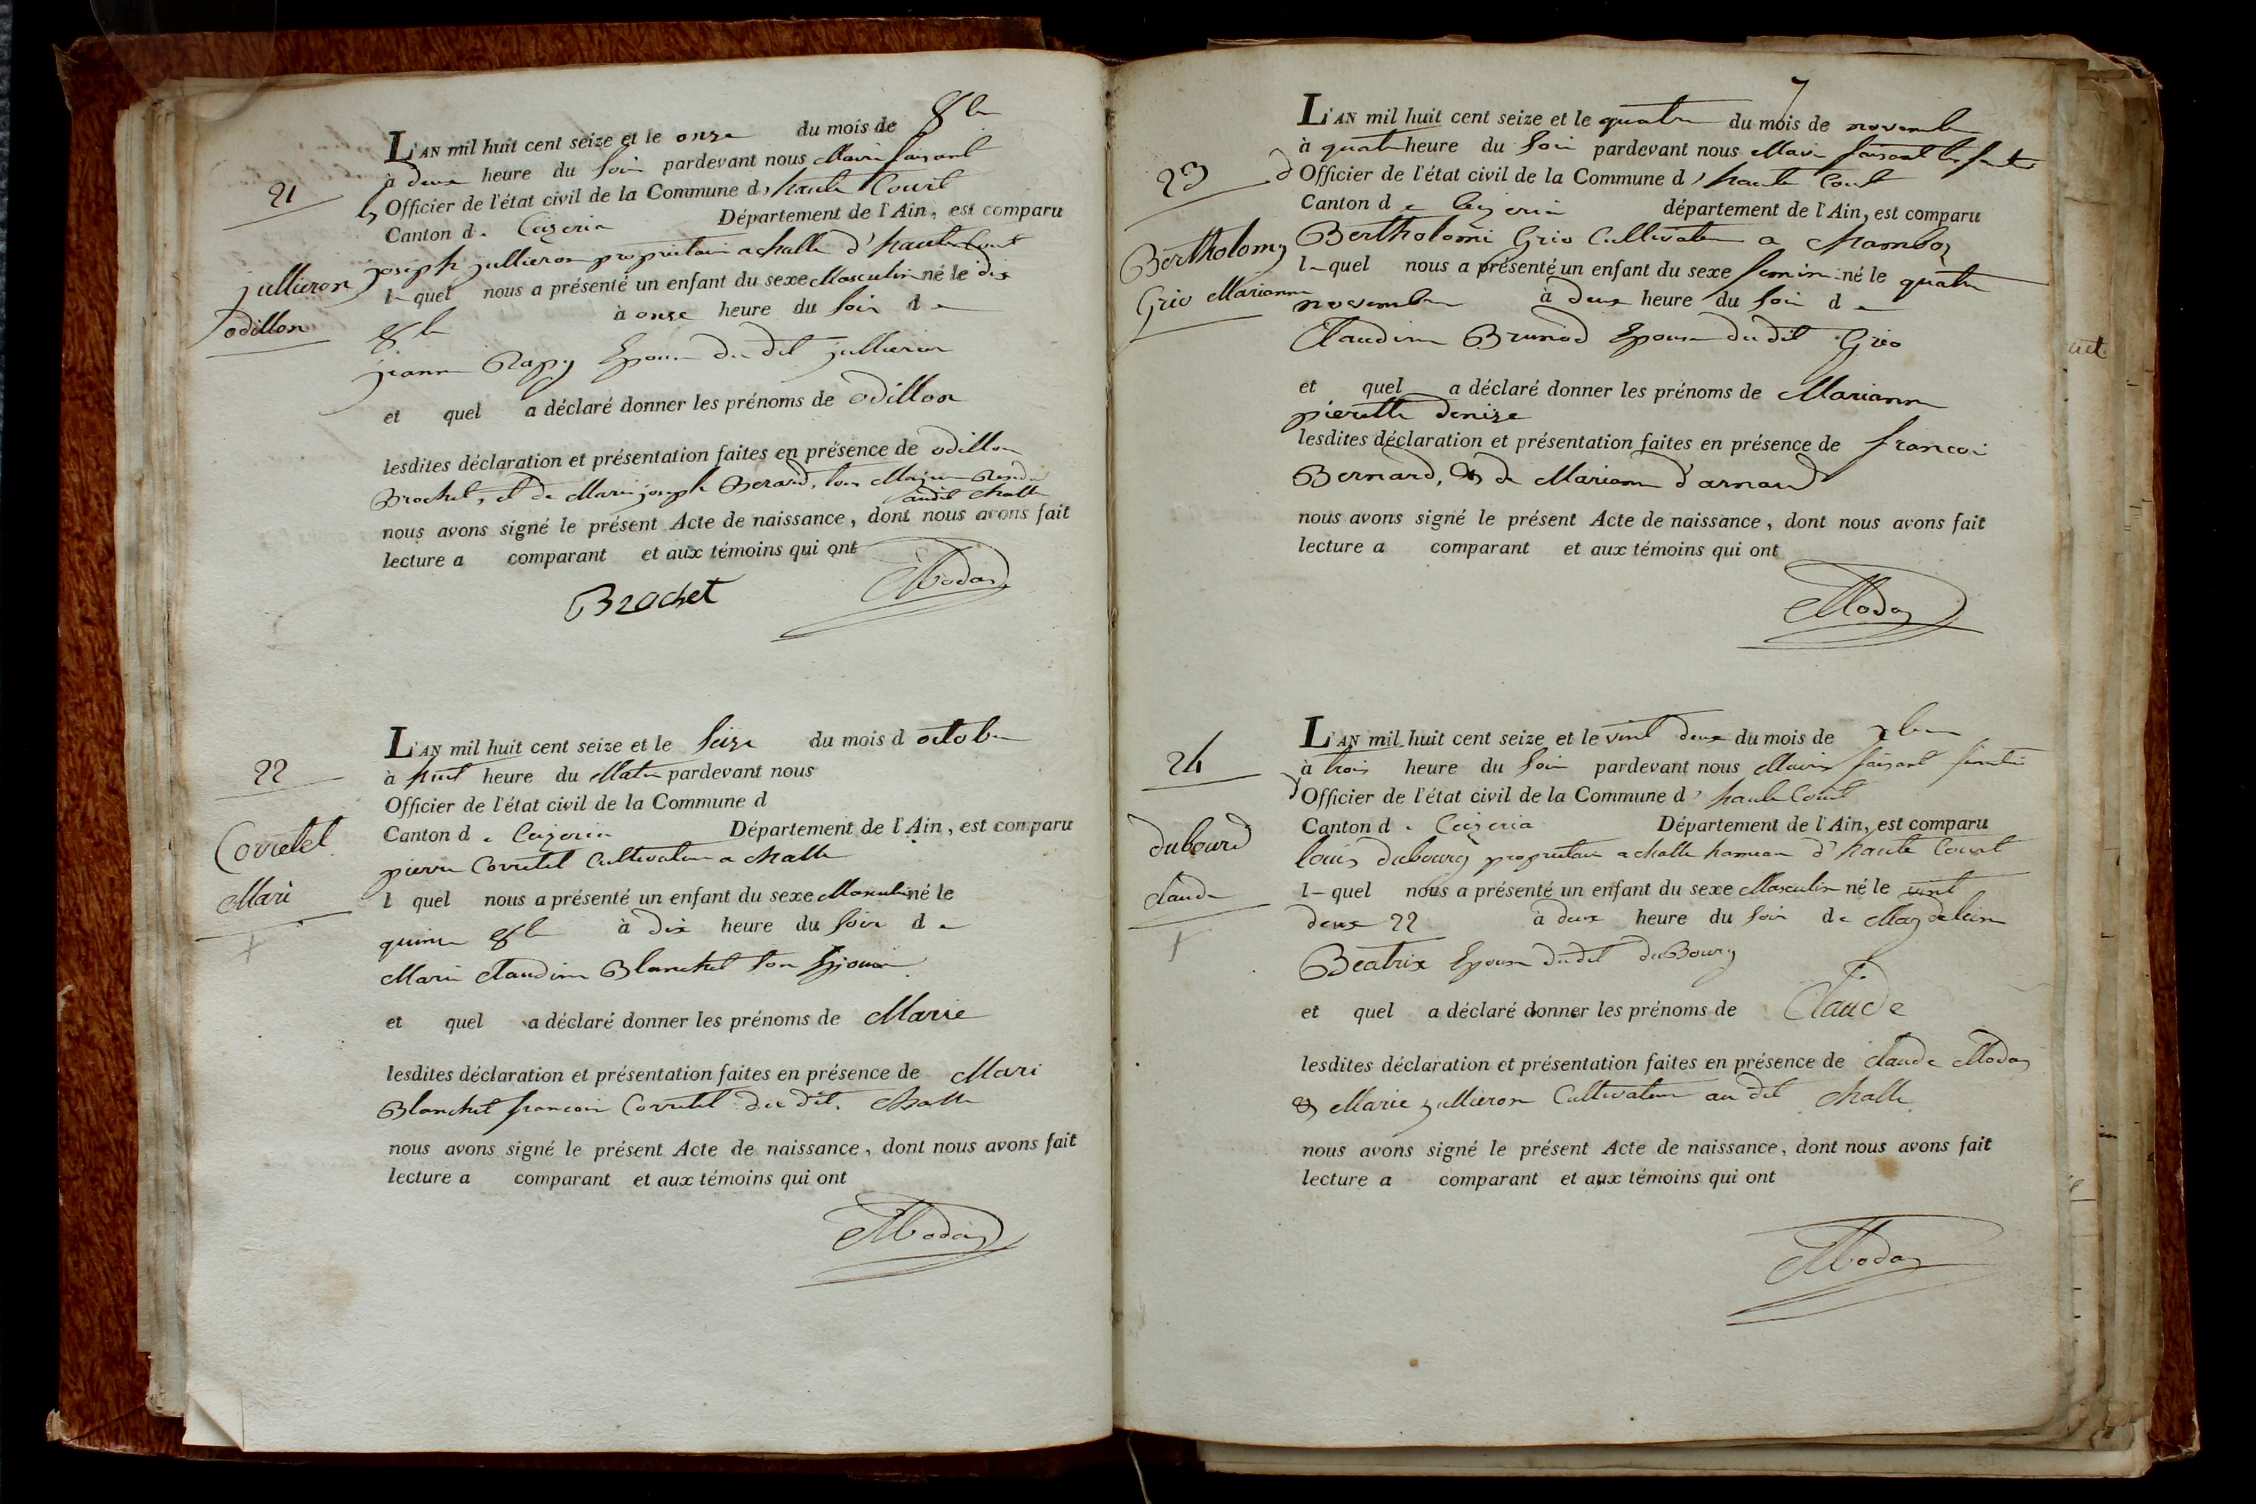 21
jullieron
odillon
L'AN mil huit cent seize et le onze du mois de 8bre
à deux heure du soir pardevant nous Maire faisant
Officier de l'état civil de la Commune d'haute Court
Canton de Ceizeria Département de l'Ain, est comparu
joseph jullieron proprietaire a challe d'haute Court
l-quel nous a présenté un enfant du sexe Masculin né le dix
8bre à onze heure du soir de
jeanne Rapy Epouse du dit jullieron
et quel a déclaré donner les prénoms de odillon
lesdites déclaration et présentation faites en présence de odillon
Brochet, et de Marie joseph Berard, tous Majeurs
audit challe
nous avons signé le présent Acte de naissance, dont nous avons fait
lecture a comparant et aux témoins qui ont
Brochet Moday
22
Corretet
Mari
L'AN mil huit cent seize et le seize du mois d octobre
à huit heure du Matin pardevant nous
Officier de l'état civil de la Commune d
Canton de Ceizeria Département de l'Ain, est comparu
pierre Corretet Cultivateur a challe
l quel nous a présenté un enfant du sexe Masculin né le
quinze 8bre à dix heure du soir de
Marie Claudine Blanchet son Epouse
et quel a déclaré donner les prénoms de Marie
lesdites déclaration et présentation faites en présence de Mari
Blanchet francois Corretet du dit challe
nous avons signé le présent Acte de naissance, dont nous avons fait
lecture a comparant et aux témoins qui ont
Moday
7
23
Bertholomy
Grio Marianne
L'AN mil huit cent seize et le quatre du mois de novembre
à quatre heure du soir pardevant nous Maire faisant les fonctions
d Officier de l'état civil de la Commune d'haute Court
Canton de Ceizeria département de l'Ain, est comparu
Bertholomi Grio Cultivateur a Chambos
l-quel nous a présenté un enfant du sexe feminin né le quatre
novembre à deux heure du soir de
Claudine Brunod Epouse du dit Grio
et quel a déclaré donner les prénoms de Marianne
pierette denize
lesdites déclaration et présentation faites en présence de francoi
Bernard, & de Marianne d'arnaud
nous avons signé le présent Acte de naissance, dont nous avons fait
lecture a comparant et aux témoins qui ont
Moday
24
dubourd
claude
L'AN mil huit cent seize et le vint deux du mois de
à trois heure du soir pardevant nous Maire faisant fonction
d Officier de l'état civil de la Commune d'haute Court
Canton de Ceizeria Département de l'Ain, est comparu
louis dubourg proprietaire a challe hameau d'haute Court
l-quel nous a présenté un enfant du sexe Masculin né le vint
deux 22 à deux heure du soir de Magdelaine
Beatrix Epouse du dit duBourg
et quel a déclaré donner les prénoms de Claude
lesdites déclaration et présentation faites en présence de claude Moday
& Marie jullieron Cultivateur au dit challe
nous avons signé le présent Acte de naissance, dont nous avons fait
lecture a comparant et aux témoins qui ont
Moday